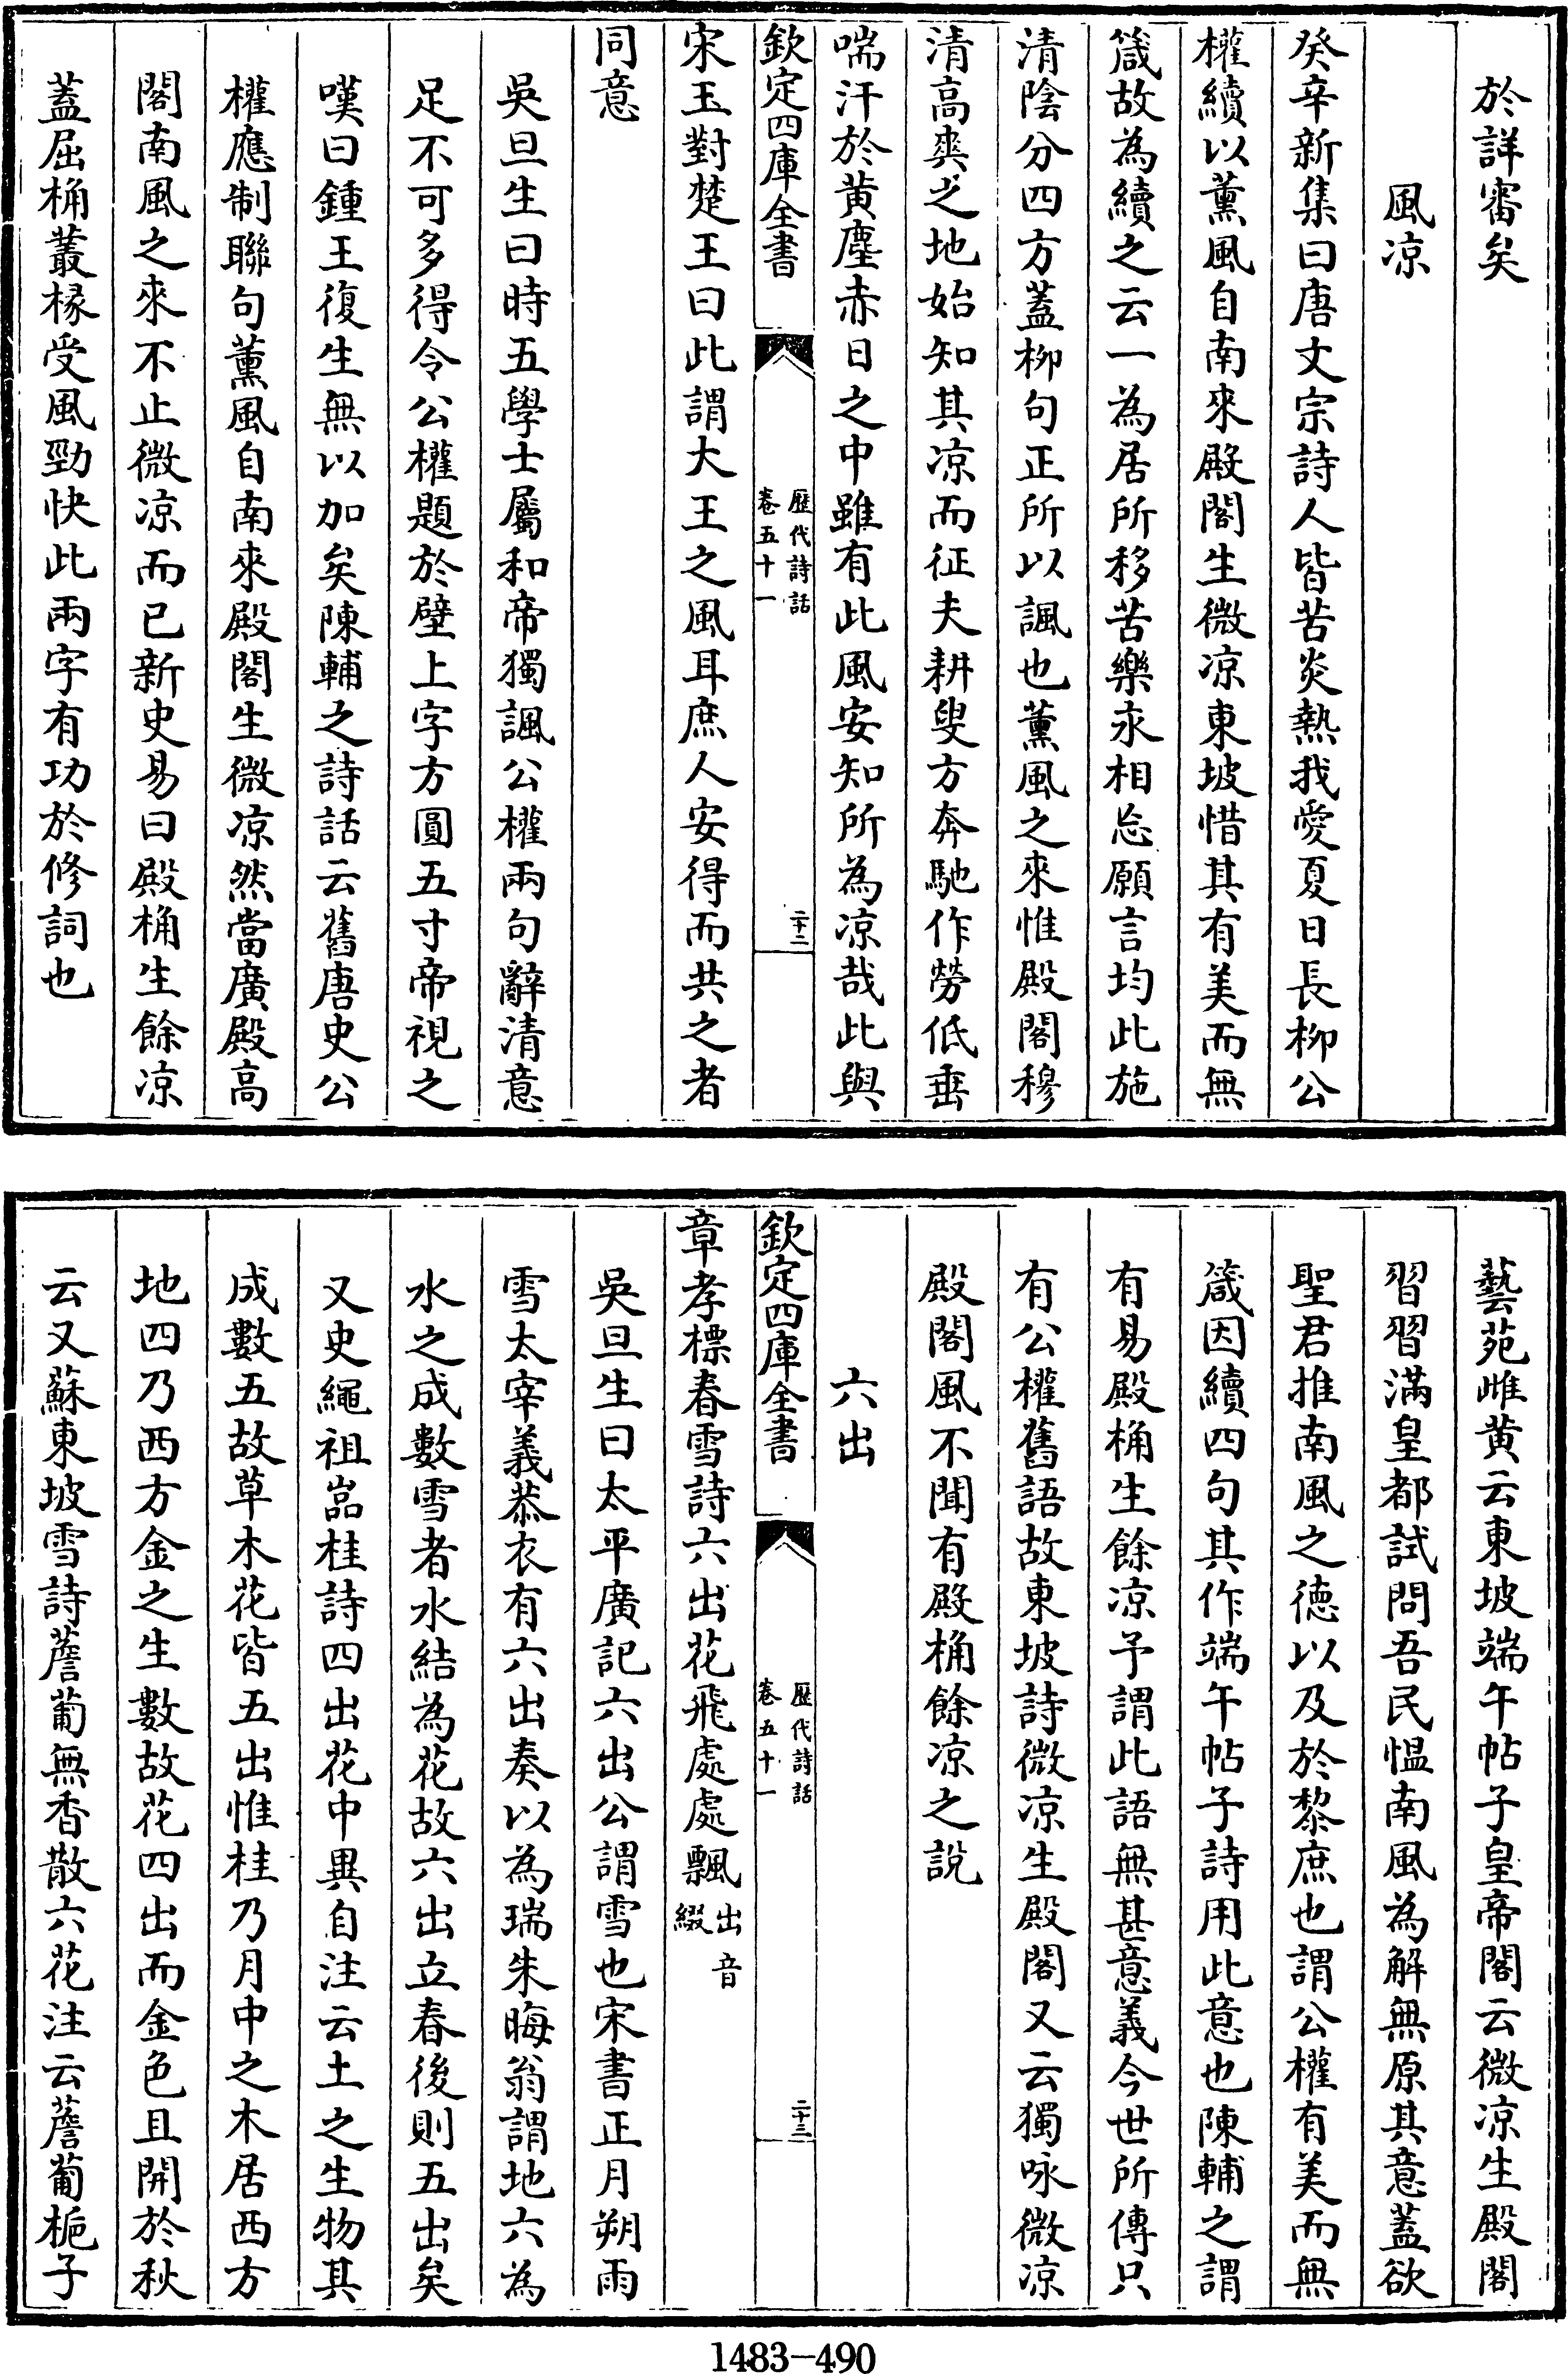 於詳審矣
風凉
癸辛新集曰唐文宗詩人皆苦炎熱我愛夏日長柳公
權續以薰風自南來殿閣生微凉東坡惜其有美而無
箴故為續之云一為居所移苦樂永相忘願言均此施
清陰分四方蓋柳句正所以諷也薰風之來惟殿閣穆
清高爽之地始知其凉而征夫耕叟方奔馳作勞低垂
喘汗於黄塵赤日之中雖有此風安知所為凉哉此與
欽定四庫全書
歷代詩話
卷五十一
二十二
宋玉對楚王曰此謂大王之風耳庶人安得而共之者
同意
吳旦生曰時五學士屬和帝獨諷公權兩句辭清意
足不可多得令公權題於壁上字方圓五寸帝視之
嘆曰鍾王復生無以加矣陳輔之詩話云舊唐史公
權應制聯句薰風自南來殿閣生微凉然當廣殿高
閣南風之來不止微凉而已新史易曰殿桷生餘凉
蓋屈桷叢椽受風勁快此兩字有功於修詞也
藝苑雌黄云東坡端午帖子皇帝閣云微凉生殿閣
習習滿皇都試問吾民愠南風為解無原其意蓋欲
聖君推南風之德以及於黎庶也謂公權有美而無
箴因續四句其作端午帖子詩用此意也陳輔之謂
有易殿桷生餘凉予謂此語無甚意義今世所傳只
有公權舊語故東坡詩微凉生殿閣又云獨咏微凉
殿閣風不聞有殿桷餘凉之說
六出
欽定四庫全書
歷代詩話
卷五十一
二十三
章孝標春雪詩六出花飛處處飄出音綴
吳旦生曰太平廣記六出公謂雪也宋書正月朔雨
雪太宰義恭衣有六出奏以為瑞朱晦翁謂地六為
水之成數雪者水結為花故六出立春後則五出矣
又史繩祖嵓桂詩四出花中異自注云土之生物其
成數五故草木花皆五出惟桂乃月中之木居西方
地四乃西方金之生數故花四出而金色且開於秋
云又蘇東坡雪詩薝蔔無香散六花注云薝蔔梔子
1483-490